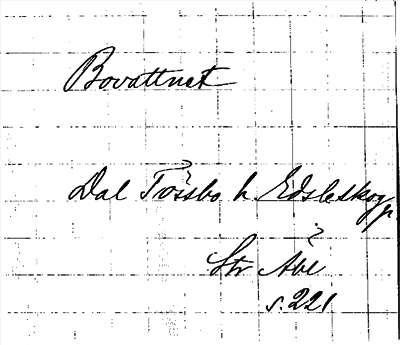 Bovattnet
Dal Tössbo h. Edsleskog p
Str Åbl
s. 221